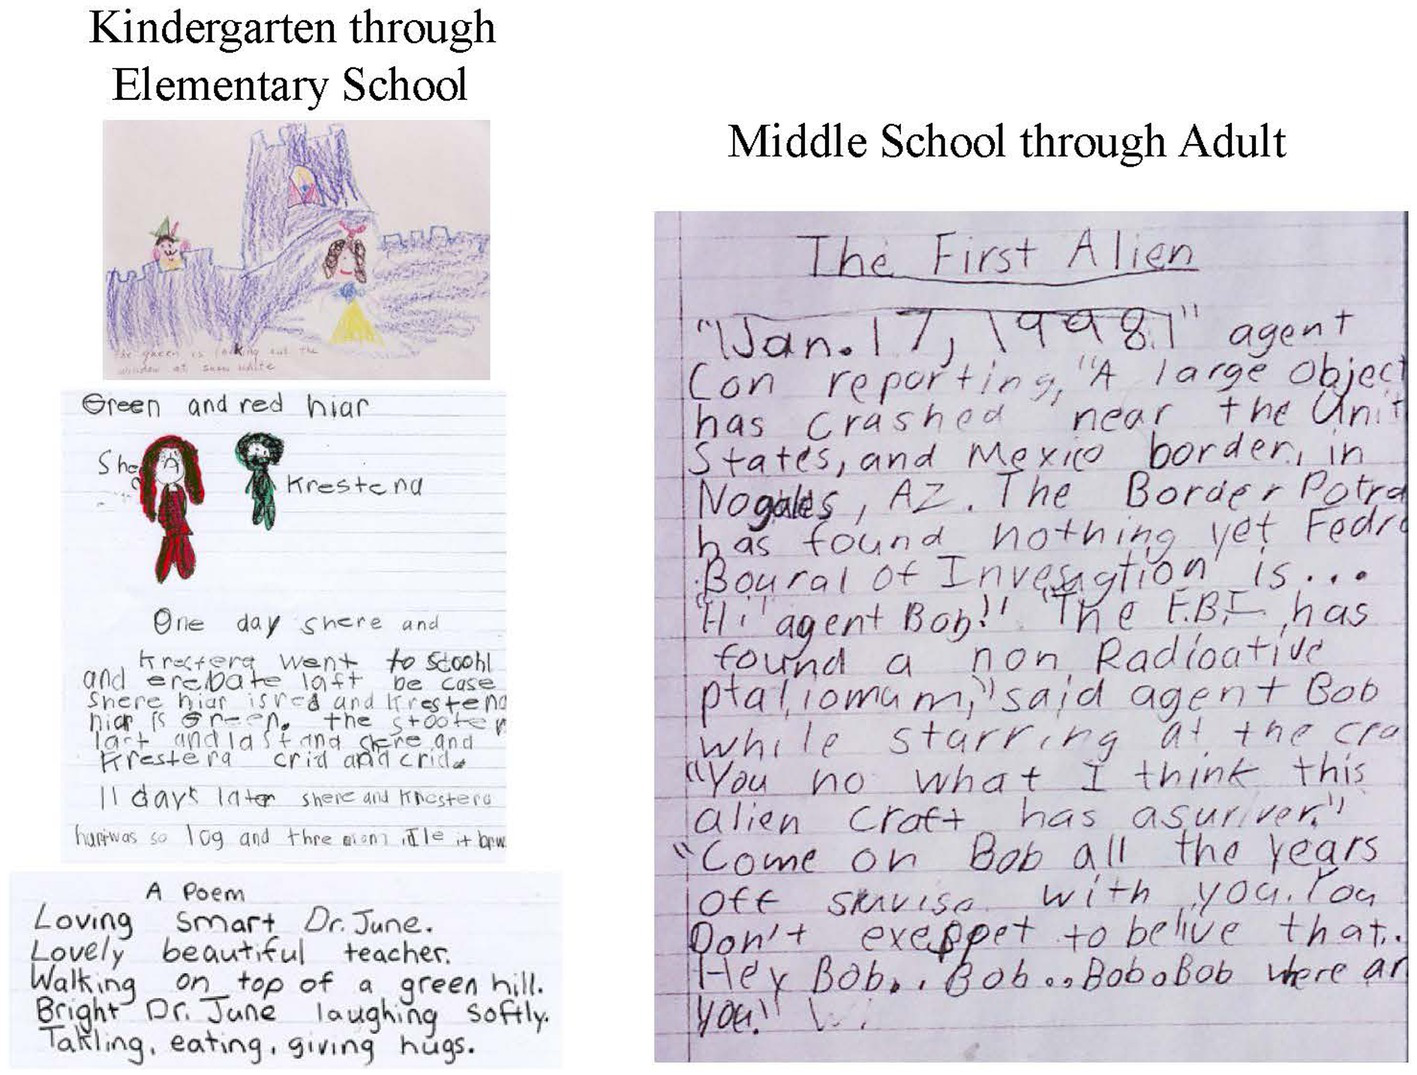 Kindergarten through
Elementary School
queen is looking out the
window at snow white
Green and red hiar
She
Krestena
One day shere and
Krestera went to scoohl
and erebate laft be case
Shere hiar is red and Krestena
hiar is Green. the stooter
laft and last and shere and
Krestera crid and crid.
11 days later shere and Krestera
was so log and thre it
A Poem
Loving smart Dr. June.
Lovely beautiful teacher.
Walking on top of a green hill.
Bright Dr. June laughing softly.
Takling, eating, giving hugs.
Middle School through Adult
The First Alien
"Jan. 17, 1998!" agent
Con reporting, "A large Object
has crashed near the Unit
States, and Mexico border, in
Nogales, AZ. The Border Potra
has found nothing yet Fedr
Boural of Invesigtion is...
"Hi" agent Bob!" "The F.B.I. has
found a non Radioative
ptaliomum," said agent Bob
while starring at the cra
"You no what I think this
alien craft has asuriver."
"Come on Bob all the years
off survise with you. You
Don't exeppet to belive that..
Hey Bob.. Bob.. Bob. Bob where ar
you!"